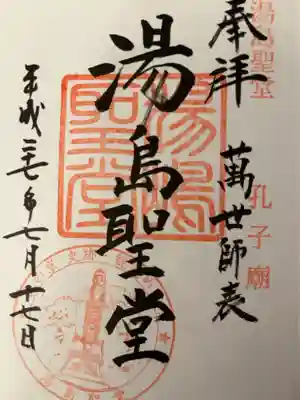 湯島聖堂 孔子廟
奉拝
萬世師表
湯島聖堂
湯島聖堂
平成二七年七月十七日